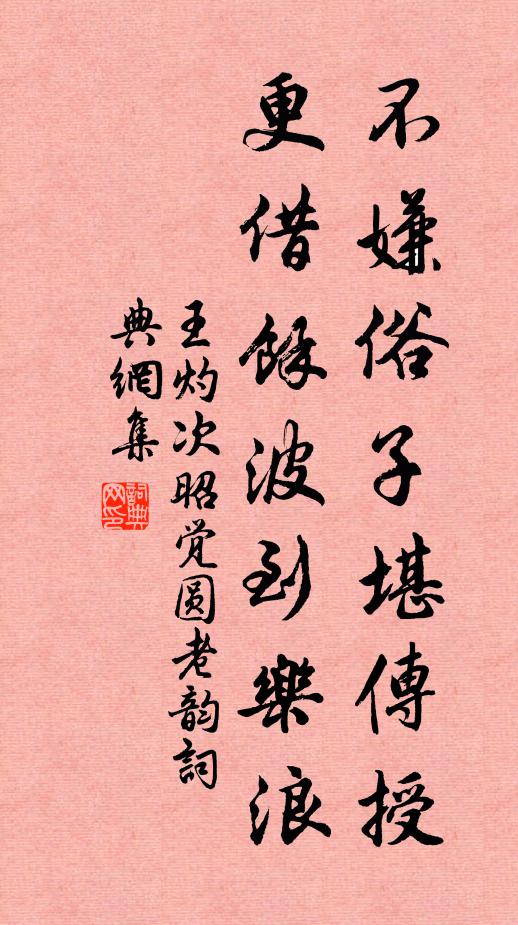 不嫌俗子堪傳授
更借餘波到樂浪
王灼次昭觉圆老韵詞
典網集
詞典
网印